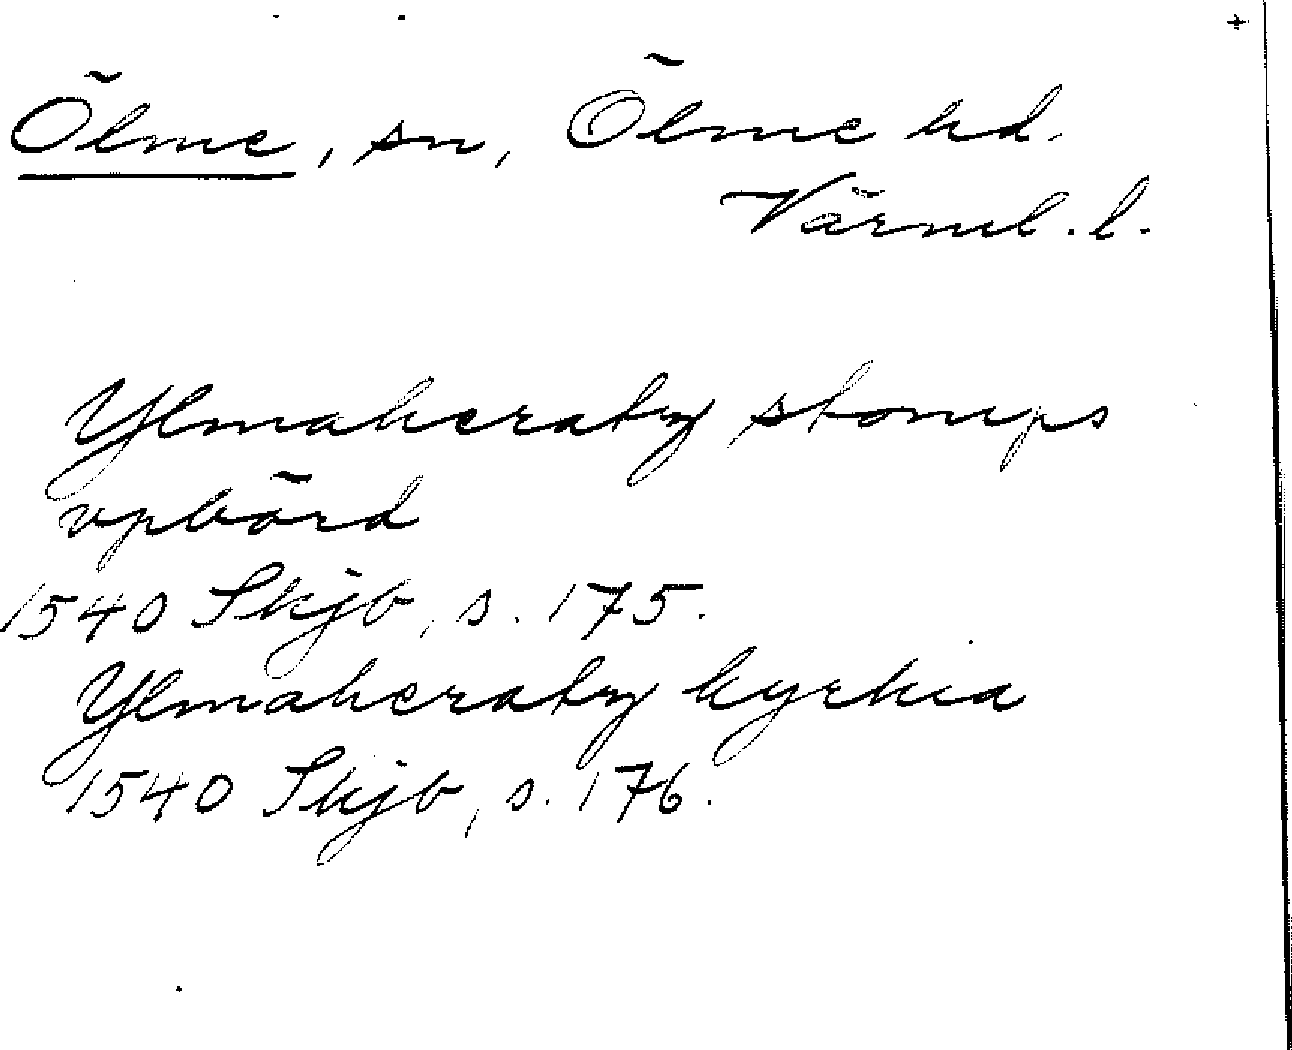 Ölme, sn, Ölme hd.
Värml. l.
Ylmaheratz stomps
vpbörd
1540 Skjb, s. 175.
Ylmaheratz kyrkia
1540 Skjb, s. 176.